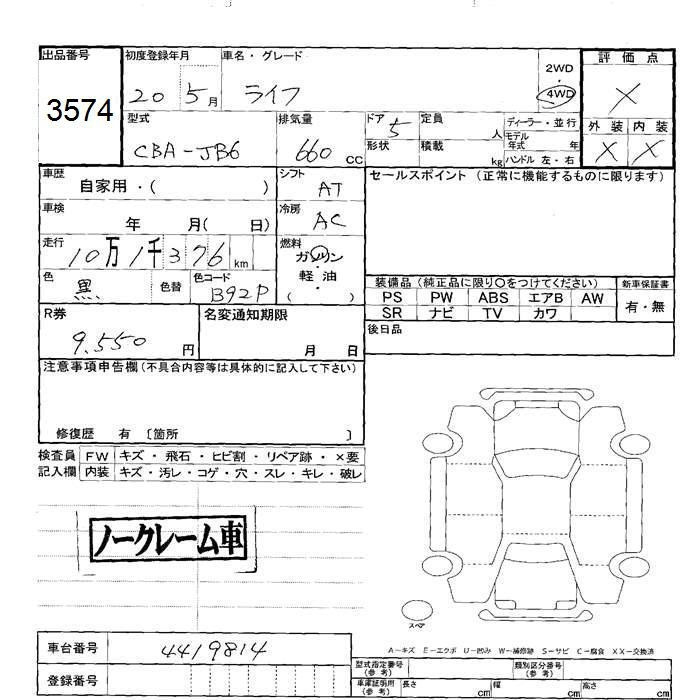 出品番号 初度登録年月 車名・グレード 2WD 評価点
3574 20 5月 ライフ ・ 4WD ×
型式 排気量 ドア 定員 ディーラー・並行 外装 内装
CBA-JB6 660 CC 5 人 モデル年式 年 × ×
形状 積載 kg ハンドル 左・右
車歴 自家用・( ) シフト AT セールスポイント (正常に機能するものに限ります)
車検 年 月( 日) 冷房 AC
走行 10万1千376 km 燃料 ガソリン・軽油・( )
色 黒 色替 色コード B92P 装備品 (純正品に限り○をつけてください) 新車保証書
PS PW ABS エアB AW 有・無
SR ナビ TV カワ
R券 9.550 円 名変通知期限 月 日 後日品
注意事項申告欄(不具合内容等は具体的に記入して下さい)
修復歴 有 〔箇所 〕
検査員 FW キズ・飛石・ヒビ割・リペア跡・×要
記入欄 内装 キズ・汚レ・コゲ・穴・スレ・キレ・破レ
ノークレーム車
スペア
A-キズ E-エクボ U-凹み W-補修跡 S-サビ C-腐食 XX-交換済
車台番号 4419814 型式指定番号(参考) 類別区分番号(参考)
登録番号 車庫証明用(参考) 長さ cm 幅 cm 高さ cm